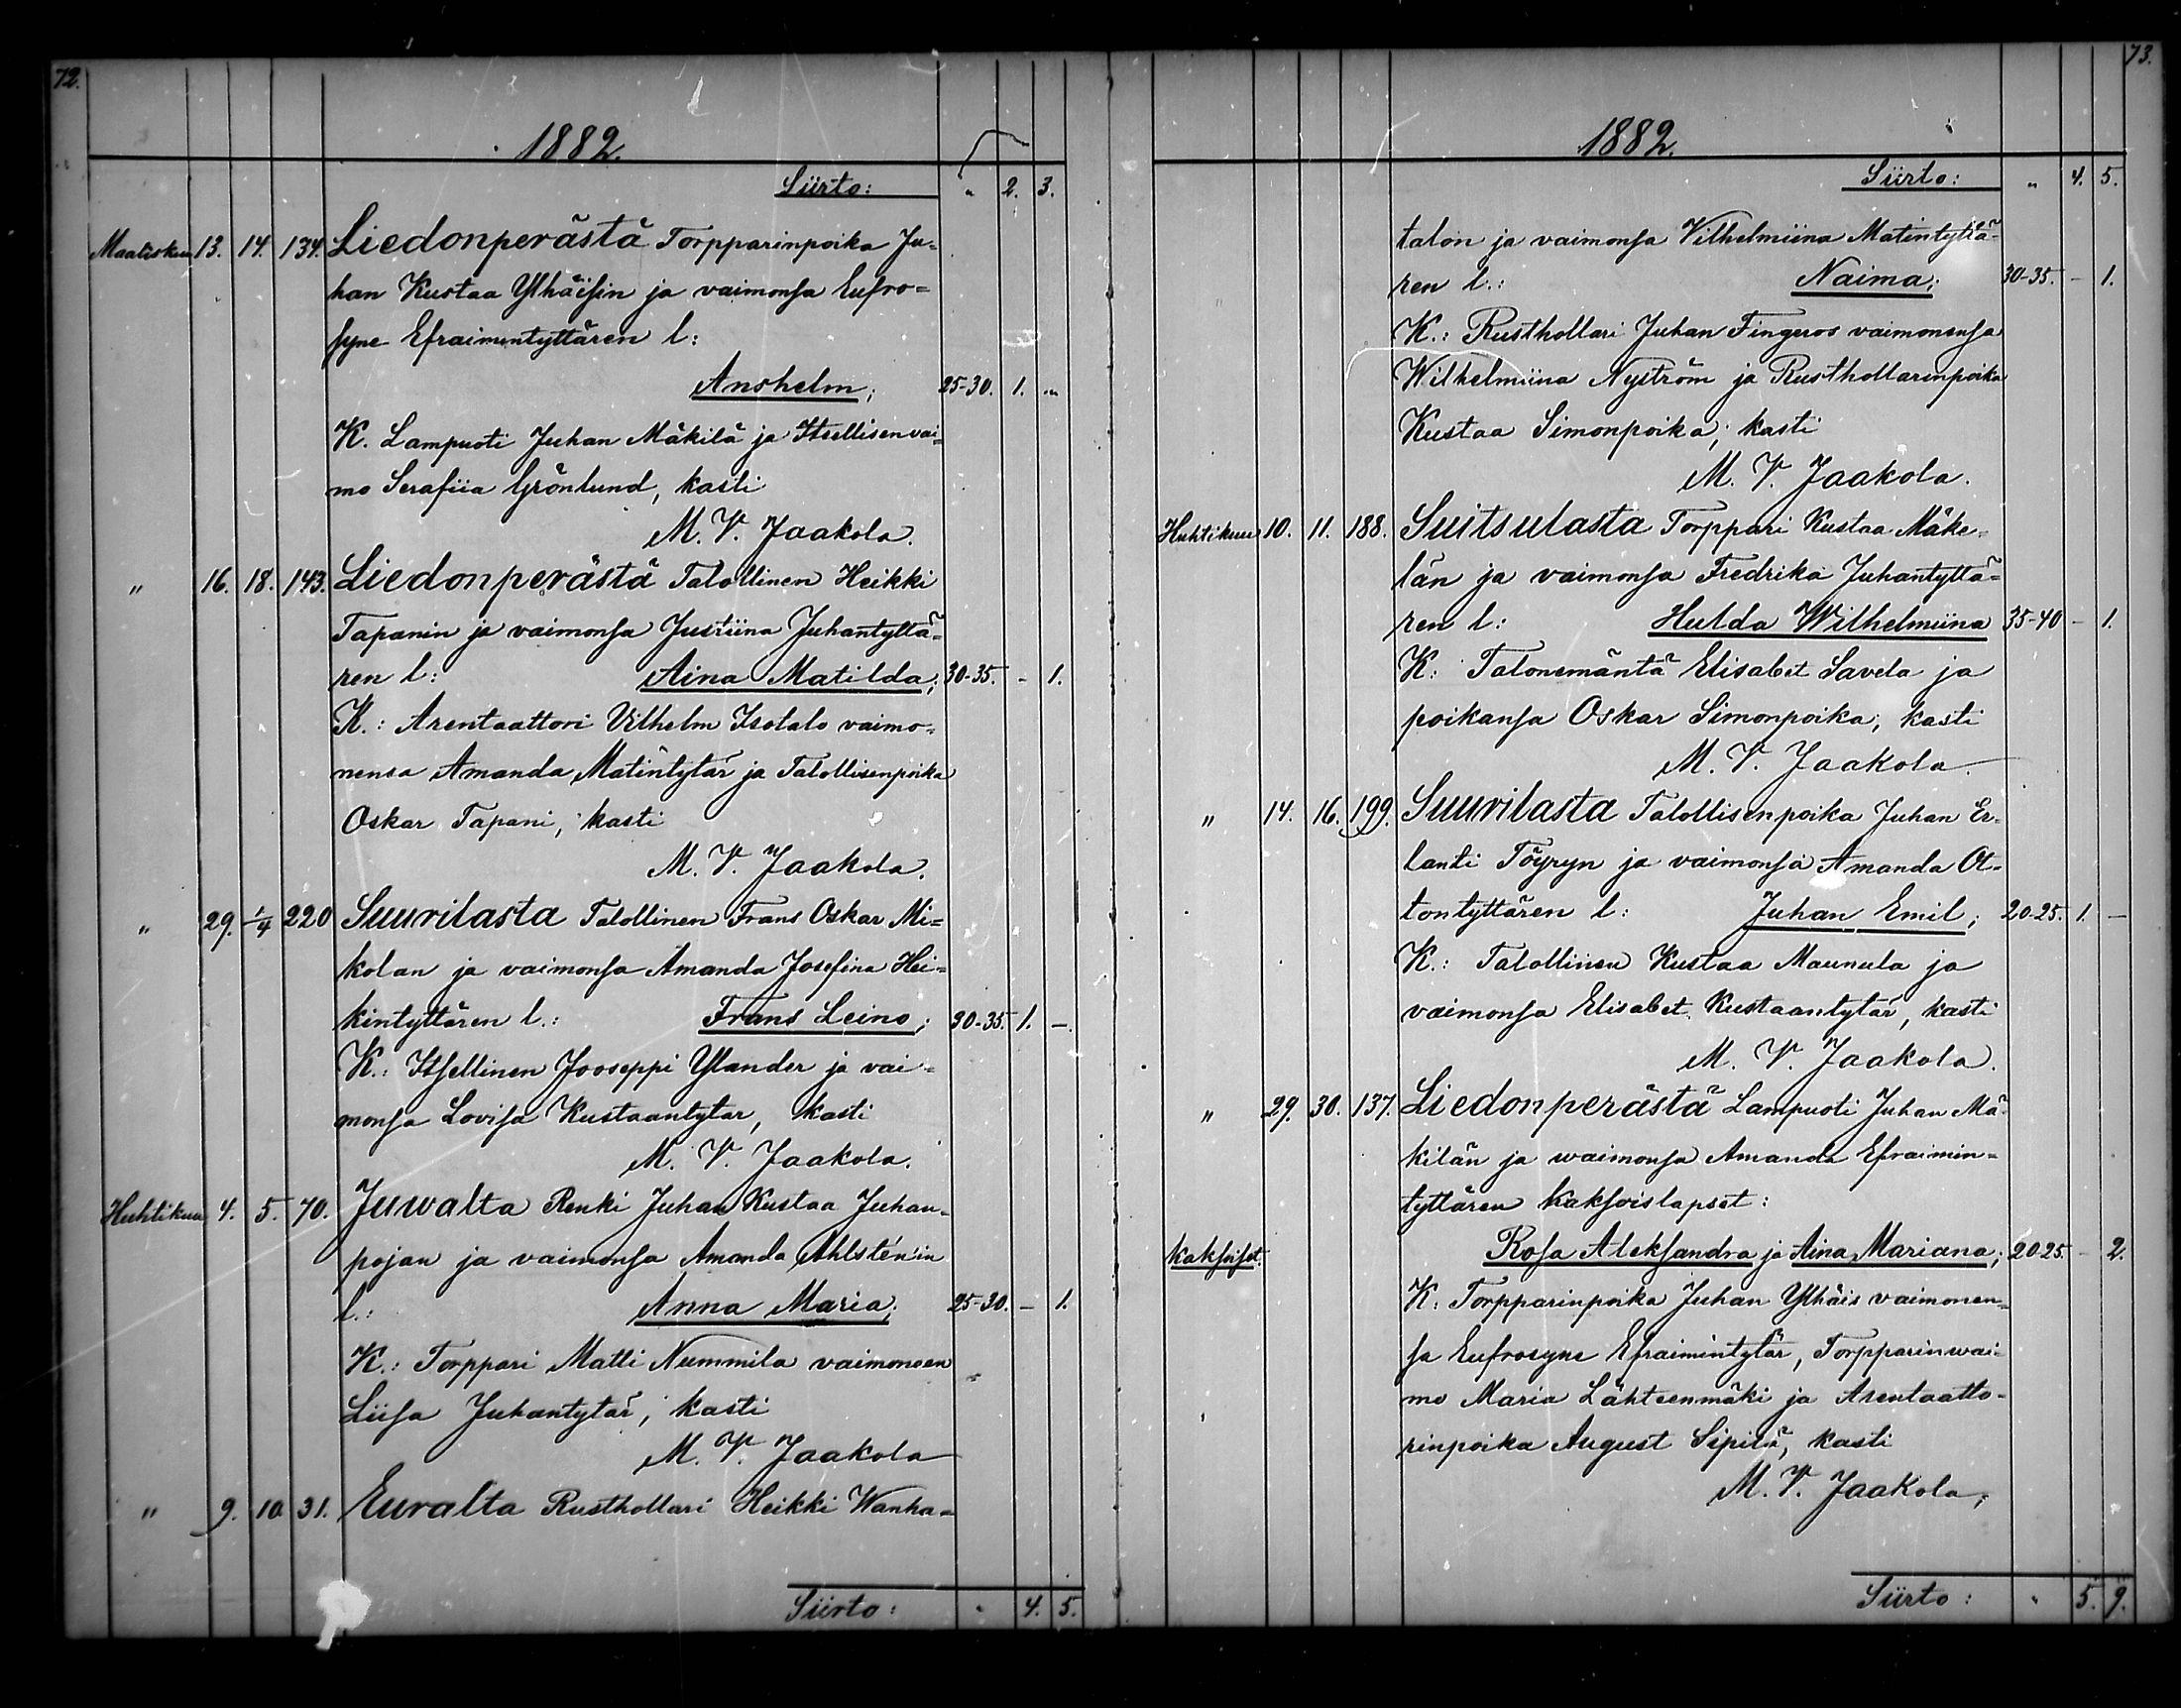 72.
1882.
Siirto: " 2. 3.
Maaliskuu 13. 14. 134. Liedonperästä Torpparinpoika Ju-
han Kustaa Ylhäisin ja vaimonsa Eufro=
syne Efraimintyttären l:
Anshelm; 25-30. 1. "
K. Lampuoti Juhan Mäkilä ja Itsellisenvai=
mo Serafiia Grönlund, kasti
M. V. Jaakola.
" 16. 18. 143. Liedonperästä Talollinen Heikki
Tapanin ja vaimonsa Justiina Juhantyttä=
ren l: Aina Matilda; 30-35. - 1.
K.: Arentaattori Vilhelm Isotalo vaimo-
nensa Amanda Matintytär ja Talollisenpoika
Oskar Tapani, kasti
M. V. Jaakola.
" 29. 1/4 220 Suurilasta Talollinen Frans Oskar Mi=
kolan ja vaimonsa Amanda Josefina Hei=
kintyttären l.: Frans Leino; 30-35. 1. -.
K.: Itsellinen Jooseppi Ylander ja vai=
monsa Lovisa Kustaantytar, kasti
M. V. Jaakola.
Huhtikuu 4. 5. 70. Juwalta Renki Juhan Kustaa Juhan-
pojan ja vaimonsa Amanda Ahlstén'in
l.: Anna Maria; 25-30. - 1.
K.: Torppari Matti Nummila vaimonsen
Liisa Juhantytär, kasti
M. V. Jaakola
" 9. 10. 31. Euralta Rusthollari Heikki Wanha=
Siirto: " 4. 5.
73.
1882.
Siirto: " 4. 5.
talon ja vaimonsa Vilhelmiina Matintyttä=
ren l.: Naima; 30-35. - 1.
K.: Rusthollari Juhan Fingeros vaimonensa
Wilhelmiina Nyström ja Rusthollarinpoika
Kustaa Simonpoika; kasti
M. V. Jaakola.
Huhtikuu 10. 11. 188. Suitsulasta Torppari Kustaa Mäke-
län ja vaimonsa Fredrika Juhantyttä=
ren l: Hulda Wilhelmiina 35-40 - 1.
K: Talonemäntä Elisabet Savela ja
poikansa Oskar Simonpoika, kasti
M. V. Jaakola.
" 14. 16. 199. Suurilasta Talollisenpoika Juhan Er-
lanti Töyryn ja vaimonsa Amanda Ot-
tontyttären l: Juhan Emil; 20-25. 1. -
K.: Talollinen Kustaa Maunula ja
vaimonsa Elisabet Kustaantytär, kasti
M. V. Jaakola.
" 29. 30. 137. Liedonperästä Lampuoti Juhan Mä-
kilän ja waimonsa Amanda Efraimin=
tyttären kaksoislapset:
Kaksoiset. Rosa Aleksandra ja Aina Mariana; 20-25. - 2.
K: Torpparinpoika Juhan Ylhäis vaimonen-
sa Eufrosyne Efraimintytär, Torpparinwai=
mo Maria Lähteenmäki ja Arentaatto-
rinpoika August Sipilä, kasti
M. V. Jaakola,
Siirto: " 5. 9.